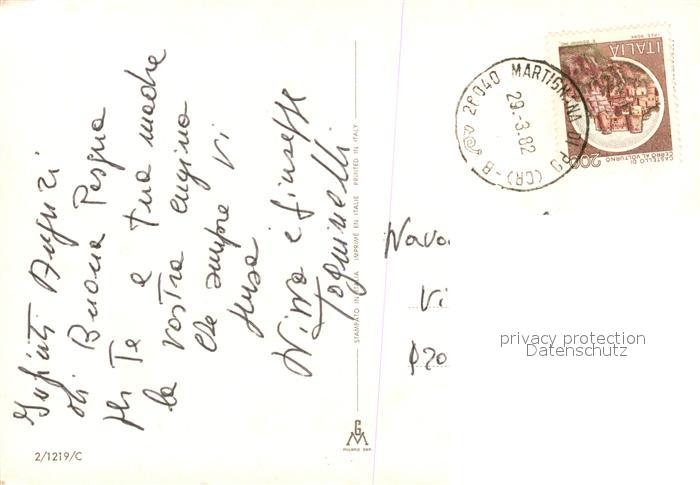 Infiniti Auguri
di Buona Pasqua
per Te e tua madre
la vostra cugina
che sempre vi
pensa
e Giuseppe
STAMPATO IN ITALIA IMPRIMÉ EN ITALIE PRINTED IN ITALY
2/1219/C
GM
MILANO DEP.
ITALIA
200
CASTELLO DI
CERRO AL VOLTURNO
26040 MARTIGNANA DI PO (CR) - B
29.-3.82
Nava
Vi
privacy protection
Datenschutz